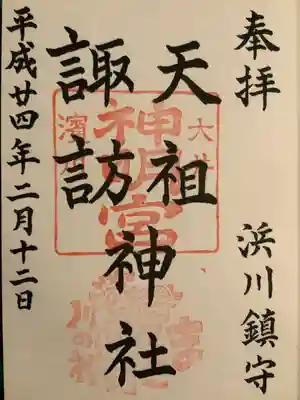 奉拝
浜川鎮守
天祖神社
諏訪
平成廿四年二月十二日
神明宮